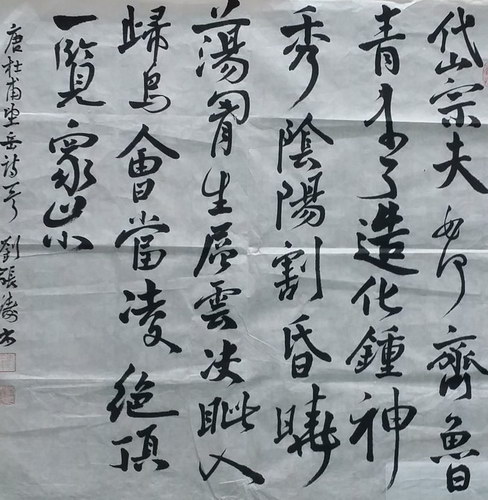 岱宗夫如何齊魯
青未了造化鍾神
秀陰陽割昏曉
蕩胷生層雲决眦入
歸鳥會當凌絕頂
一覽衆山小
唐杜甫望岳詩一首 劉張濤书